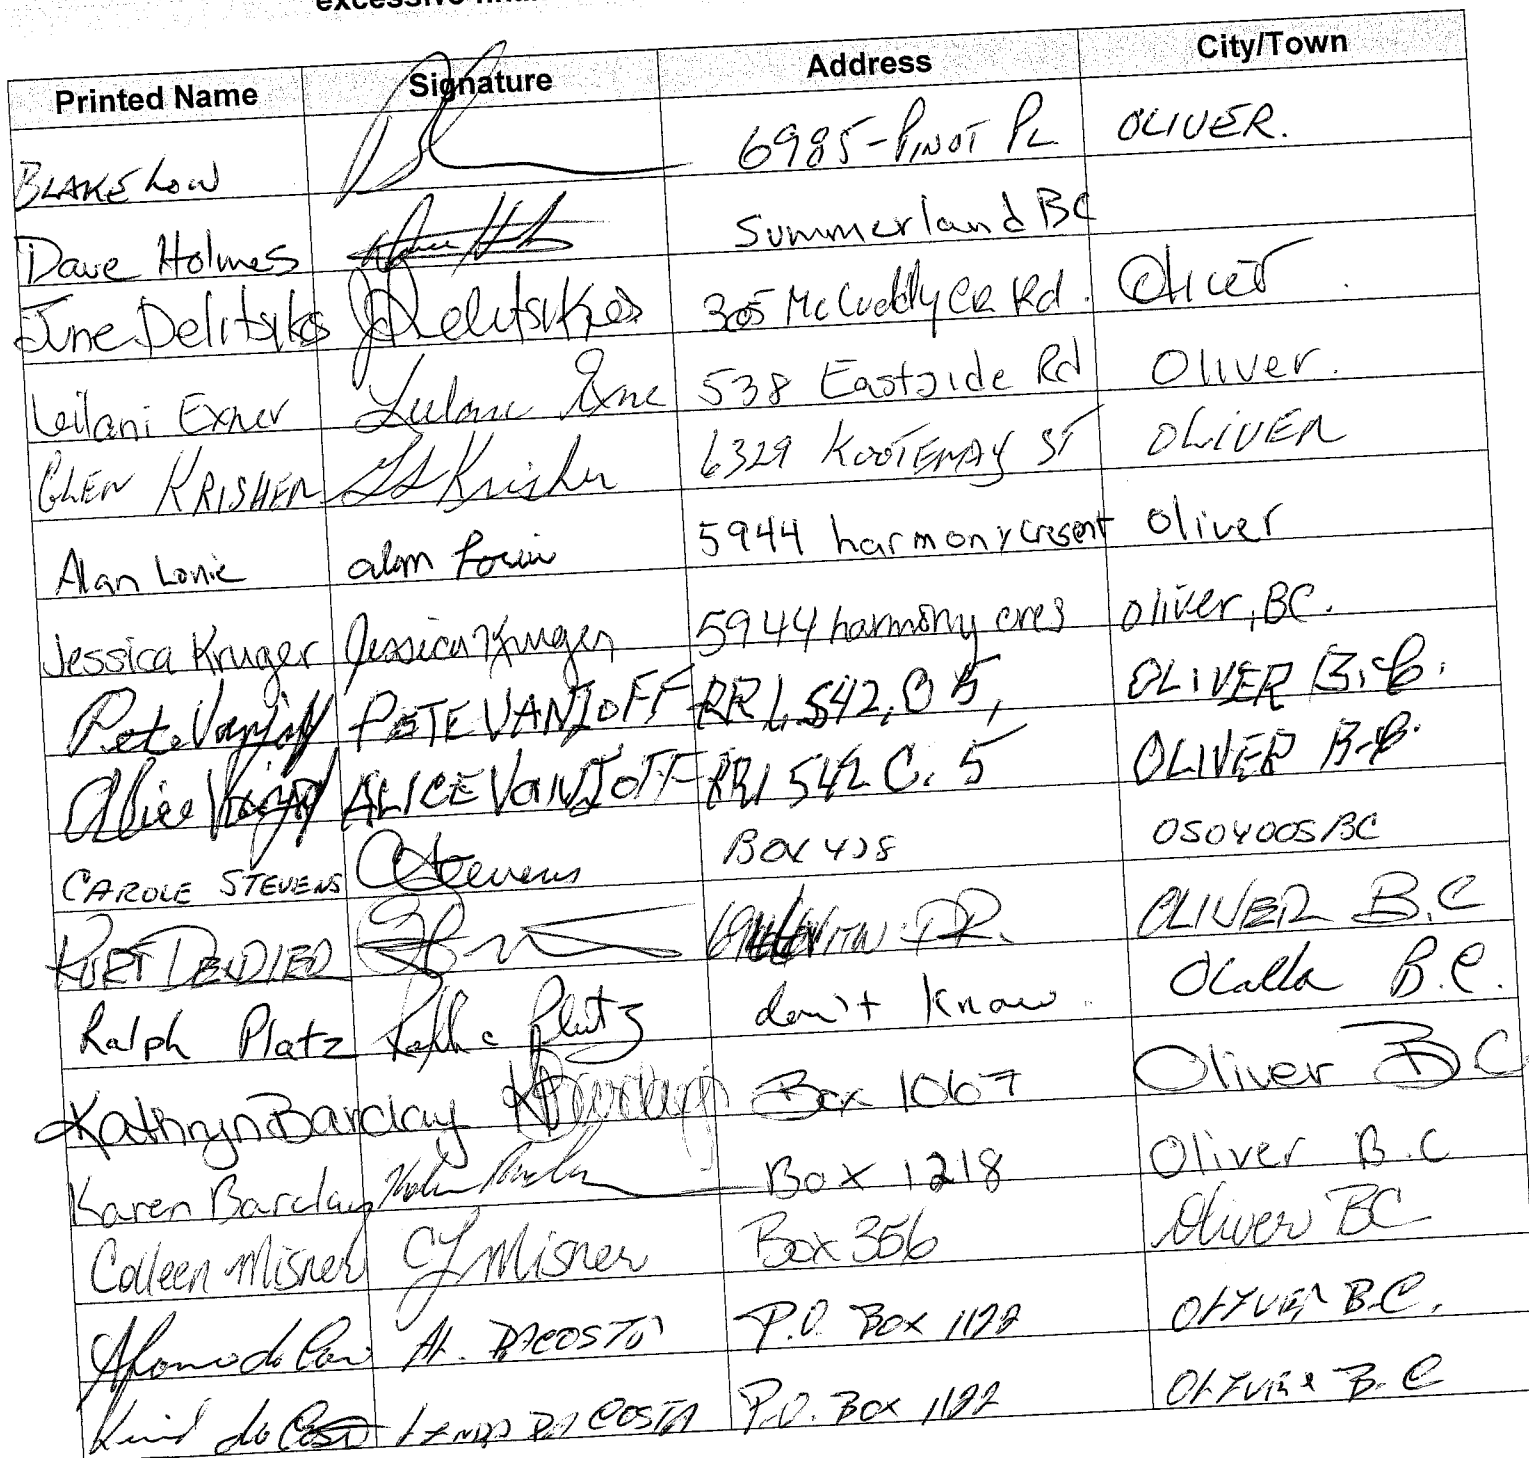 Printed Name Signature Address City/Town
BLAKE LOW 6985-PINOT PL OLIVER.
Dave Holmes Summerland BC
June Delitsikos JDelitsikos 305 McCuddy CR Rd. Oliver
Leilani Exner 538 Eastside Rd Oliver.
GLEN KRISHER GS Krisher 6329 KOOTENAY ST OLIVER
Alan Lonie 5944 harmony cresent oliver
Jessica Kruger Jessica Kruger 5944 harmony cres oliver, BC.
Pete Vanjoff PETE VANJOFF RR1, S42, C 5, OLIVER B.C.
Alice Vanjoff ALICE VANJOFF RR1 S42 C. 5 OLIVER B.C.
CAROLE STEVENS CStevens BOX 428 OSOYOOS/BC
KURT DR. OLIVER B.C
Ralph Platz Ralph Platz don't know. OKalla B.C.
Kathryn Barclay KBarclay Box 1067 Oliver BC
Karen Barclay Box 1218 Oliver B.C
Colleen Misner CJ Misner Box 356 Oliver BC
Al. DACOSTA P.O. BOX 1122 OLYVER B.C.
LYNDA DA COSTA P.O. BOX 1122 OLYVER B.C